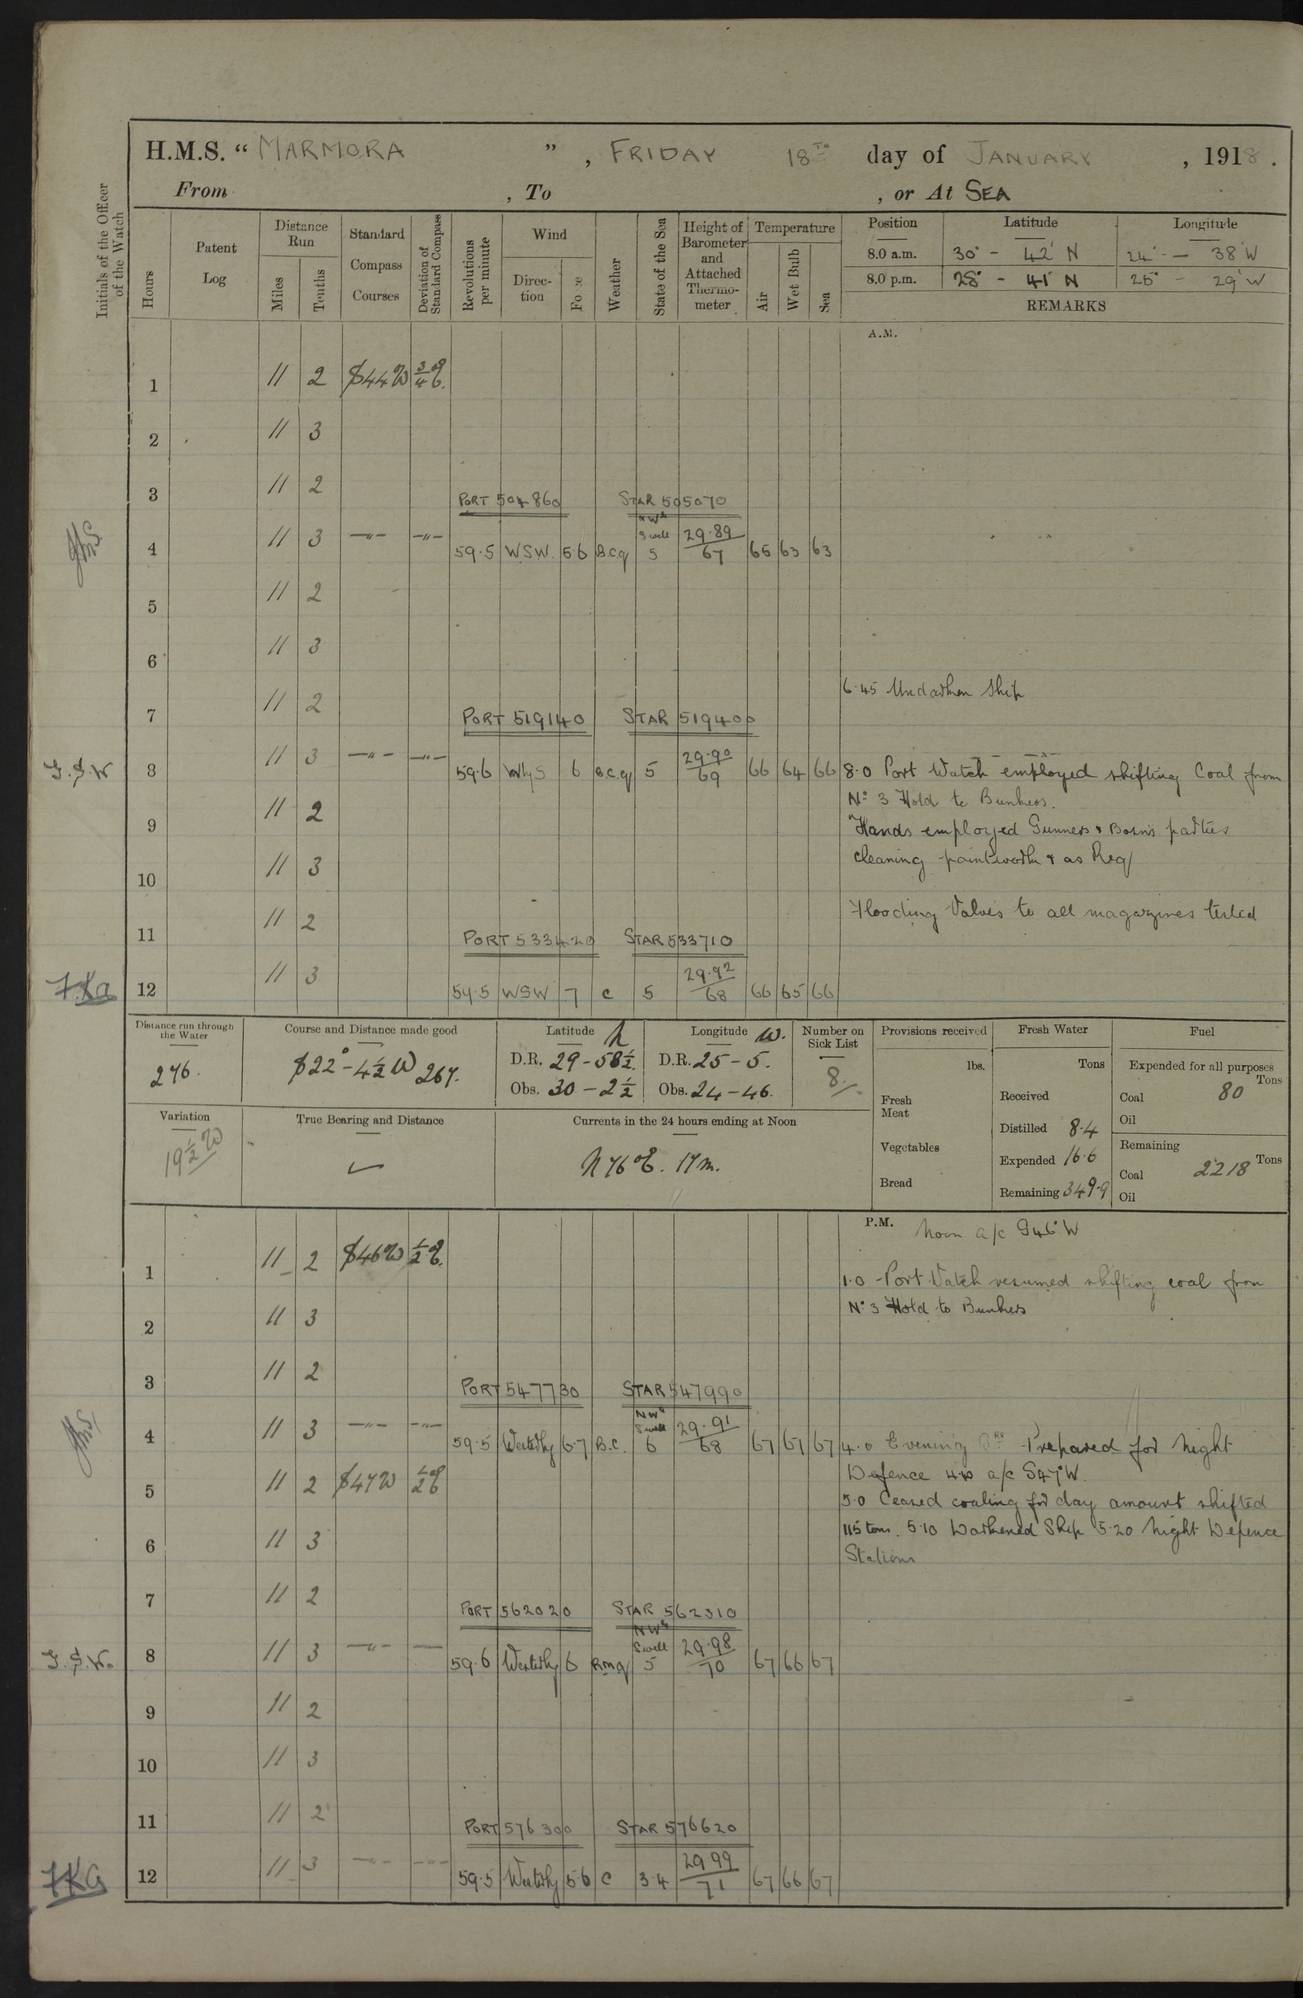 H.M.S. “ MARMORA ” , FRIDAY 18TH day of JANUARY , 1918.
From , To , or At SEA
Initials of the Officer of the Watch
Hours
Patent Log
Distance Run
Miles
Tenths
Standard Compass Courses
Deviation of Standard Compass
Revolutions per minute
Wind
Direction
Force
Weather
State of the Sea
Height of Barometer and Attached Thermometer
Temperature
Air
Wet Bulb
Sea
Position Latitude Longitude
8.0 a.m. 30° - 42' N 24° - 38' W
8.0 p.m. 28° - 41' N 25° - 29' W
REMARKS
A.M.
1 11 2 S44W 3/4 E.
2 11 3
3 11 2
PORT 504860 STAR 505070
4 11 3 —"— —"— 59.5 WSW. 56 B.C.q NWly Swell 5 29.89/67 65 63 63
5 11 2
6 11 3
6.45 Undarken Ship
7 11 2
PORT 519140 STAR 519400
J.S.W 8 11 3 —"— —"— 59.6 WbyS 6 B.C.q 5 29.90/69 66 64 66 8.0 Port Watch employed shifting Coal from
No 3 Hold to Bunkers.
9 11 2
Hands employed Gunners & Bosn's parties
10 11 3 cleaning paintwork & as Req
Flooding Valves to all magazines tested
11 11 2
PORT 533420 STAR 533710
12 11 3 59.5 WSW 7 C 5 29.92/68 66 65 66
Distance run through the Water
276.
Course and Distance made good
S22° - 4½ W 267.
Latitude N
D.R. 29 - 58½.
Obs. 30 - 2½
Longitude W.
D.R. 25 - 5.
Obs. 24 - 46.
Number on Sick List
8.
Provisions received
lbs.
Fresh Meat
Vegetables
Bread
Fresh Water
Tons
Received
Distilled 8.4
Expended 16.6
Remaining 349.9
Fuel
Expended for all purposes
Tons
Coal 80
Oil
Remaining
Tons
Coal 2218
Oil
Variation
19½ W
True Bearing and Distance
Currents in the 24 hours ending at Noon
N 76° E. 17 m.
P.M. Noon a/c S46°W
1 11 2 S46W ½ E.
1.0 Port Watch resumed shifting coal from
No 3 Hold to Bunkers
2 11 3
3 11 2
PORT 547730 STAR 547990
4 11 3 —"— —"— 59.5 Westerly 6.7 B.C. NWly Swell 6 29.91/68 67 67 67 4.0 Evening Qrs Prepared for Night
Defence 4.10 a/c S47°W.
5 11 2 S47W ½ E
5.0 Ceased coaling for day amount shifted
115 tons. 5.10 Darkened Ship 5.20 Night Defence
Stations
6 11 3
7 11 2
PORT 562020 STAR 562310
J.S.W. 8 11 3 —"— — 59.6 Westerly 6 NWly Swell 5 29.98/70 67 66 67
9 11 2
10 11 3
11 11 2
PORT 576300 STAR 576620
12 11 3 —"— —"— 59.5 Westerly 5.6 C 3.4 29.99/71 67 66 67